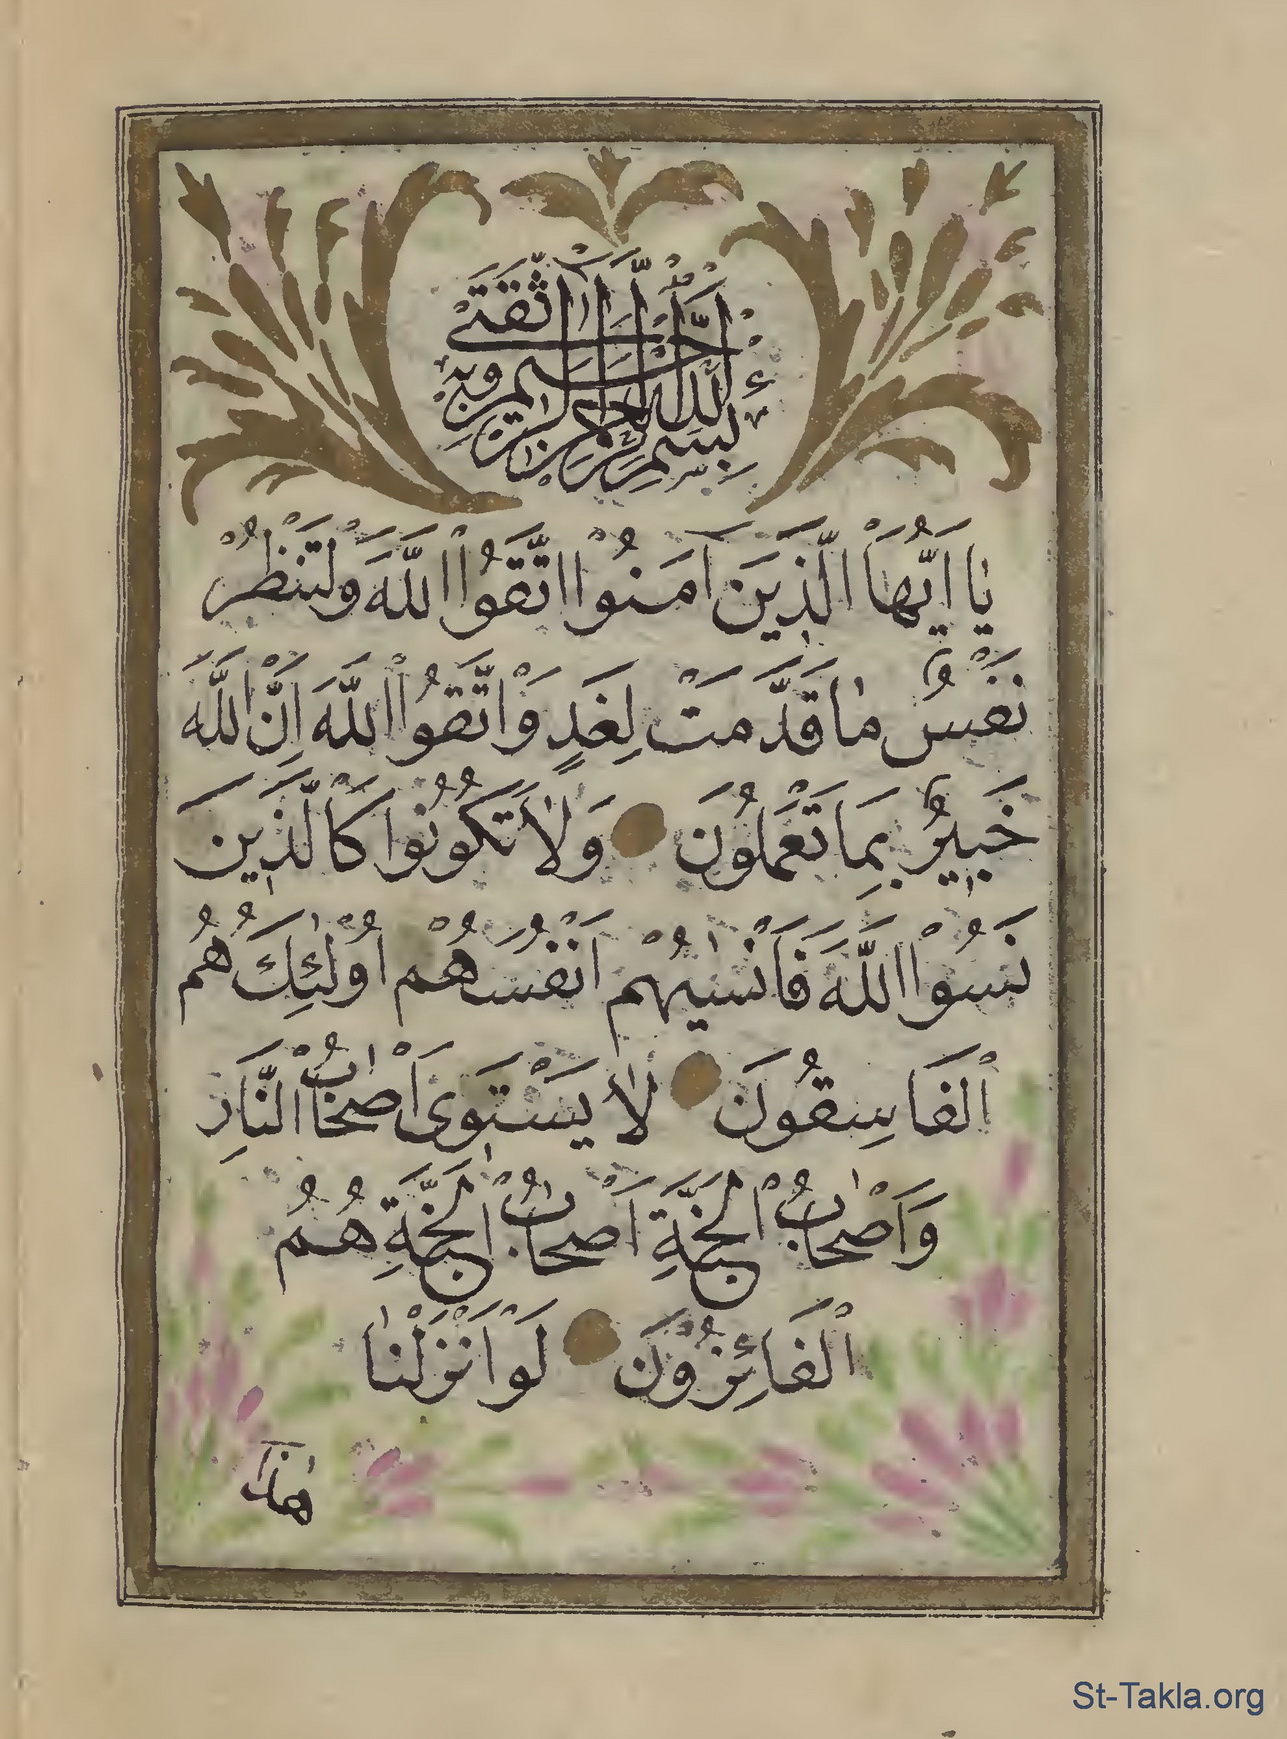 بسم الله الرحمن الرحيم وبه ثقتى
يَا اَيُّهَا الَّذِينَ آمَنُوْا اتَّقُوا اللَّهَ وَلْتَنْظُرْ
نَفْسٌ مٰا قَدَّمَتْ لِغَدٍ وَاتَّقُوا اللَّهَ اِنَّ اللَّهَ
خَبِيرٌ بِمَا تَعْمَلُونَ وَلَا تَكُونُوا كَالَّذِينَ
نَسُوْا اللَّهَ فَاَنْسٰيهُمْ اَنْفُسَهُمْ اُولٰئِكَ هُمُ
الْفَاسِقُونَ لَا يَسْتَوِى اَصْحَابُ النَّارِ
وَاَصْحَابُ الْجَنَّةِ اَصْحَابُ الْجَنَّةِ هُمُ
الْفَائِزُونَ لَوْ اَنْزَلْنَا
هٰذَا
St-Takla.org